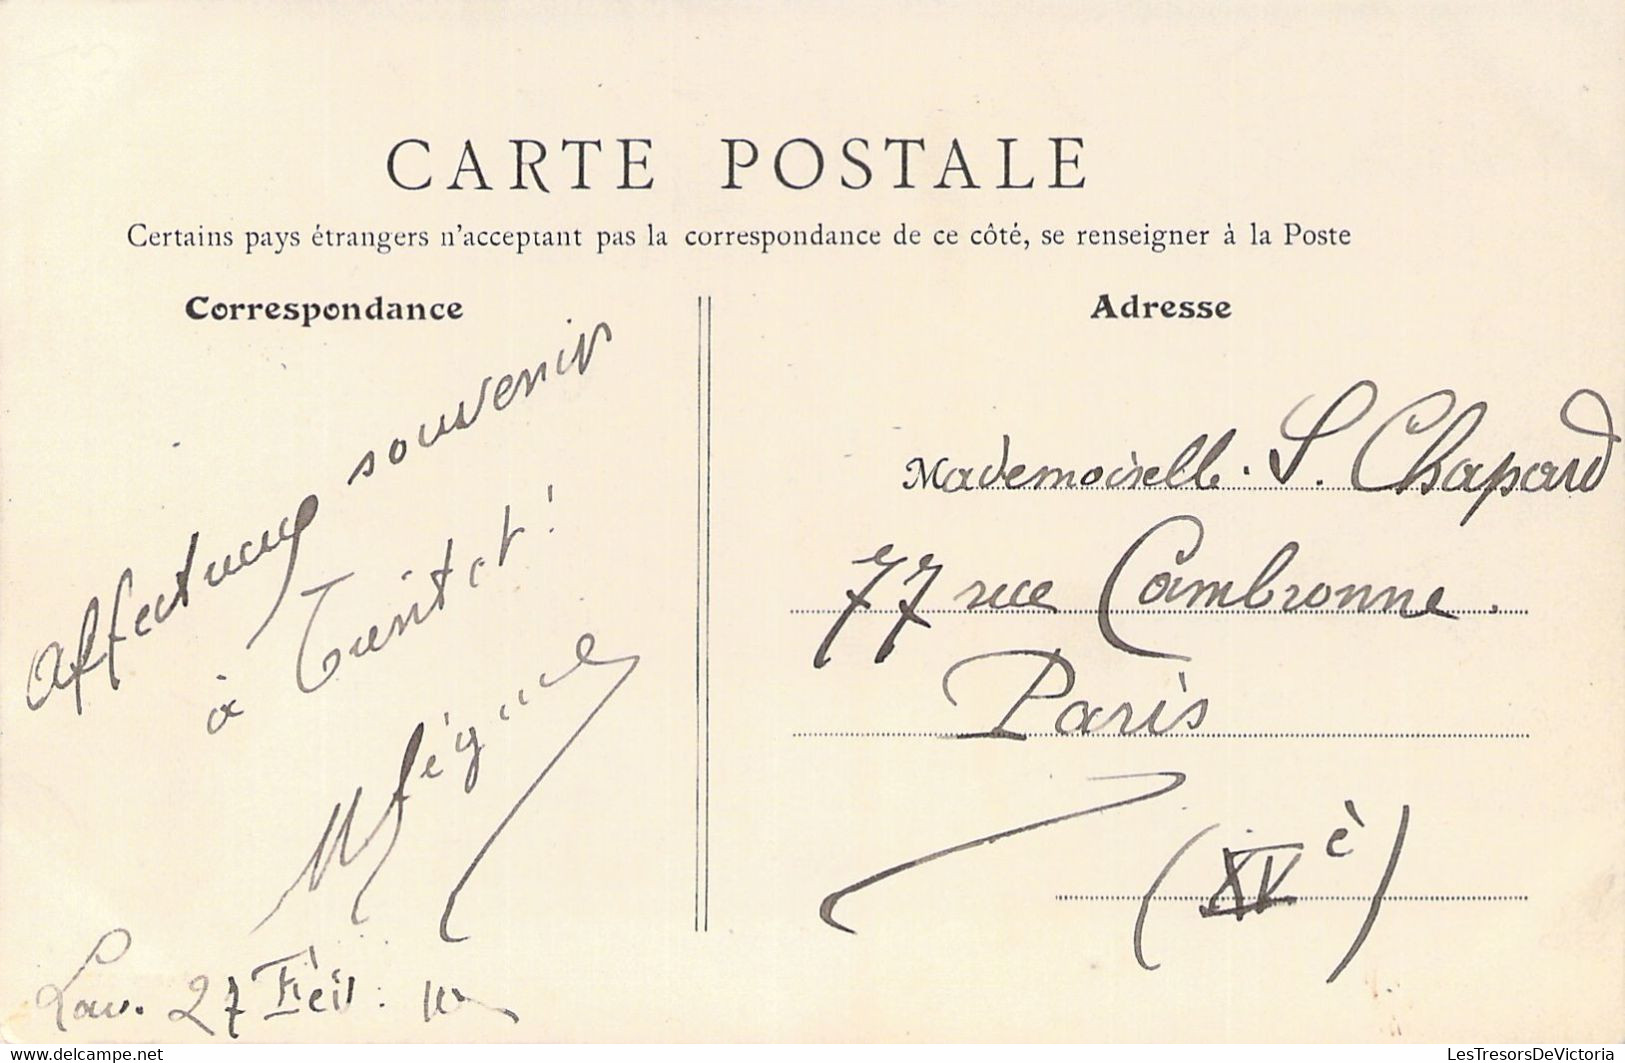 CARTE POSTALE
Certains pays étrangers n'acceptant pas la correspondance de ce côté, se renseigner à la Poste
Correspondance
Affectueux souvenir
à
27 Fév.
Adresse
Mademoiselle S. Chapard
77 rue Cambronne.
Paris
(XVè)
LesTresorsDeVictoria